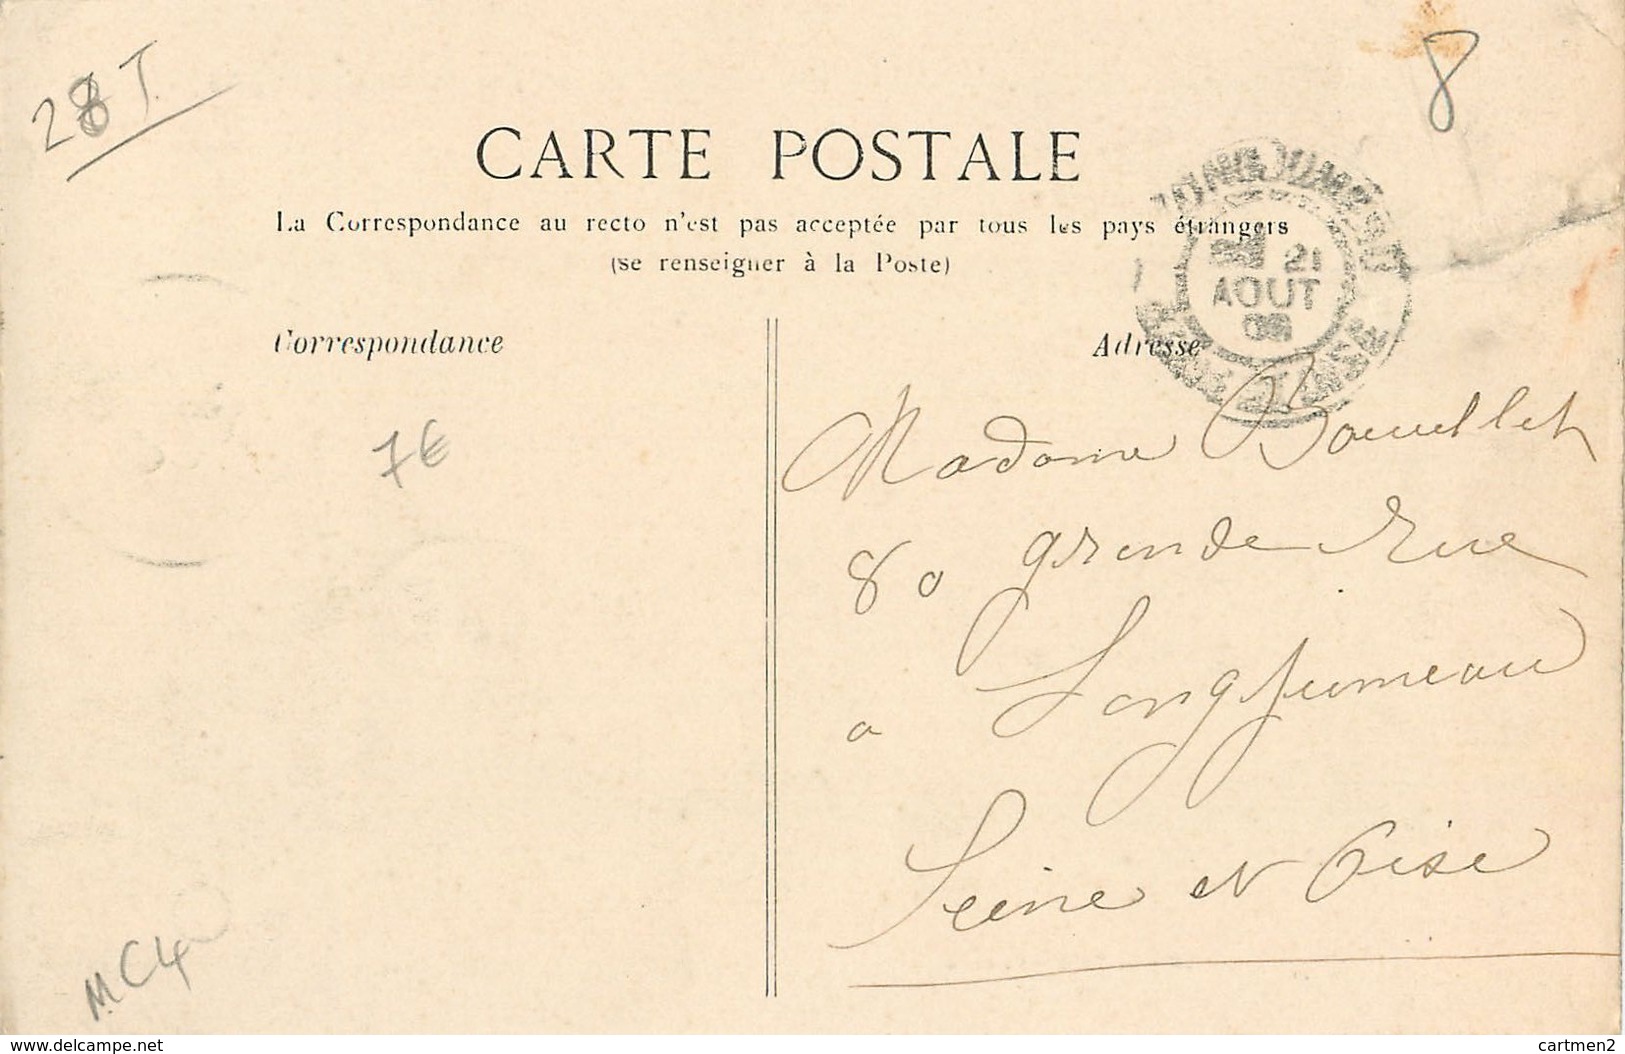 28 J.
8
CARTE POSTALE
La Correspondance au recto n'est pas acceptée par tous les pays étrangers
(se renseigner à la Poste)
21
AOUT
Correspondance
Adresse
7€
Madame
80 grande Rue
a Longjumeau
Seine et Oise
MC4
www.delcampe.net
cartmen2